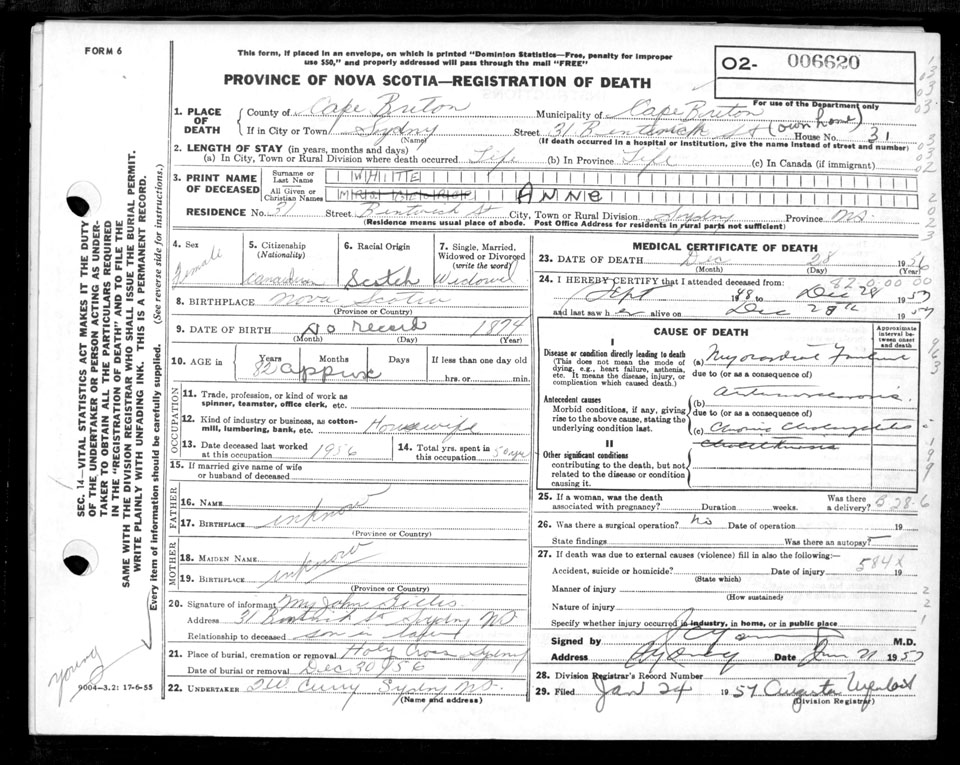 FORM 6
This form, if placed in an envelope, on which is printed "Dominion Statistics—Free, penalty for improper
use $50," and properly addressed will pass through the mail "FREE"
PROVINCE OF NOVA SCOTIA—REGISTRATION OF DEATH
O2- 006620
For use of the Department only
1. PLACE OF DEATH
County of Cape Breton Municipality of Cape Breton
If in City or Town Sydny Street 31 Bentinck St (own home) House No. 31
(Name) (If death occurred in a hospital or institution, give the name instead of street and number)
2. LENGTH OF STAY (in years, months and days)
(a) In City, Town or Rural Division where death occurred Life (b) In Province Life (c) In Canada (if immigrant)
3. PRINT NAME OF DECEASED
Surname or Last Name WHITE
All Given or Christian Names ANNe
RESIDENCE No. 31 Street Bentinck St City, Town or Rural Division Sydny Province NS.
(Residence means usual place of abode. Post Office Address for residents in rural parts not sufficient)
4. Sex Female
5. Citizenship (Nationality) Canadian
6. Racial Origin Scotch
7. Single, Married, Widowed or Divorced (write the word) Widowed
8. BIRTHPLACE Nova Scotia
(Province or County)
9. DATE OF BIRTH No record 1874
(Month) (Day) (Year)
10. AGE in Years Months Days If less than one day old
82 approx hrs. or min.
OCCUPATION
11. Trade, profession, or kind of work as
spinner, teamster, office clerk, etc.
12. Kind of industry or business, as cotton-
mill, lumbering, bank, etc. Housewife
13. Date deceased last worked
at this occupation 1956
14. Total yrs. spent in
this occupation 50 yrs
15. If married give name of wife
or husband of deceased
FATHER
16. NAME
17. BIRTHPLACE unknow
(Province or Country)
MOTHER
18. MAIDEN NAME
19. BIRTHPLACE unknow
(Province or Country)
20. Signature of informant John Gillis
Address 31 Bentinck St Sydny NS
Relationship to deceased son in law
21. Place of burial, cremation or removal Holy Cross Sydny
Date of burial or removal Dec 30 1956
22. UNDERTAKER Curry Sydny NS.
(Name and address)
MEDICAL CERTIFICATE OF DEATH
23. DATE OF DEATH Dec 28 1956
(Month) (Day) (Year)
24. I HEREBY CERTIFY that I attended deceased from:
Sept 1948 to Dec 28 1957
and last saw her alive on Dec 28th 1957
CAUSE OF DEATH
Approximate interval between onset and death
I
Disease or condition directly leading to death
(This does not mean the mode of
dying, e.g., heart failure, asthenia,
etc. It means the disease, injury, or
complication which caused death.)
(a) Myocardial Failure
due to (or as a consequence of)
Antecedent causes
Morbid conditions, if any, giving
rise to the above cause, stating the
underlying condition last.
(b) Arteriosclerosis.
due to (or as a consequence of)
(c) Chronic Cholecystitis
Cholelithiasis
II
Other significant conditions
contributing to the death, but not
related to the disease or condition
causing it.
25. If a woman, was the death
associated with pregnancy? Duration weeks. Was there a delivery? B 28-6
26. Was there a surgical operation? No Date of operation 19
State findings Was there an autopsy?
27. If death was due to external causes (violence) fill in also the following:—
Accident, suicide or homicide? Date of injury 584X 19
(State which)
Manner of injury
(How sustained)
Nature of injury
Specify whether injury occurred in industry, in home, or in public place
Signed by M.D.
Address Sydney Date Jan 21 1957
28. Division Registrar's Record Number
29. Filed Jan 24 1957
(Division Registrar)
SEC. 14—VITAL STATISTICS ACT MAKES IT THE DUTY
OF THE UNDERTAKER OR PERSON ACTING AS UNDER-
TAKER TO OBTAIN ALL THE PARTICULARS REQUIRED
IN THE "REGISTRATION OF DEATH" AND TO FILE THE
SAME WITH THE DIVISION REGISTRAR WHO SHALL ISSUE THE BURIAL PERMIT.
WRITE PLAINLY WITH UNFADING INK. THIS IS A PERMANENT RECORD.
Every item of information should be carefully supplied. (See reverse side for instructions.)
young
9004—3.2: 17-6-55